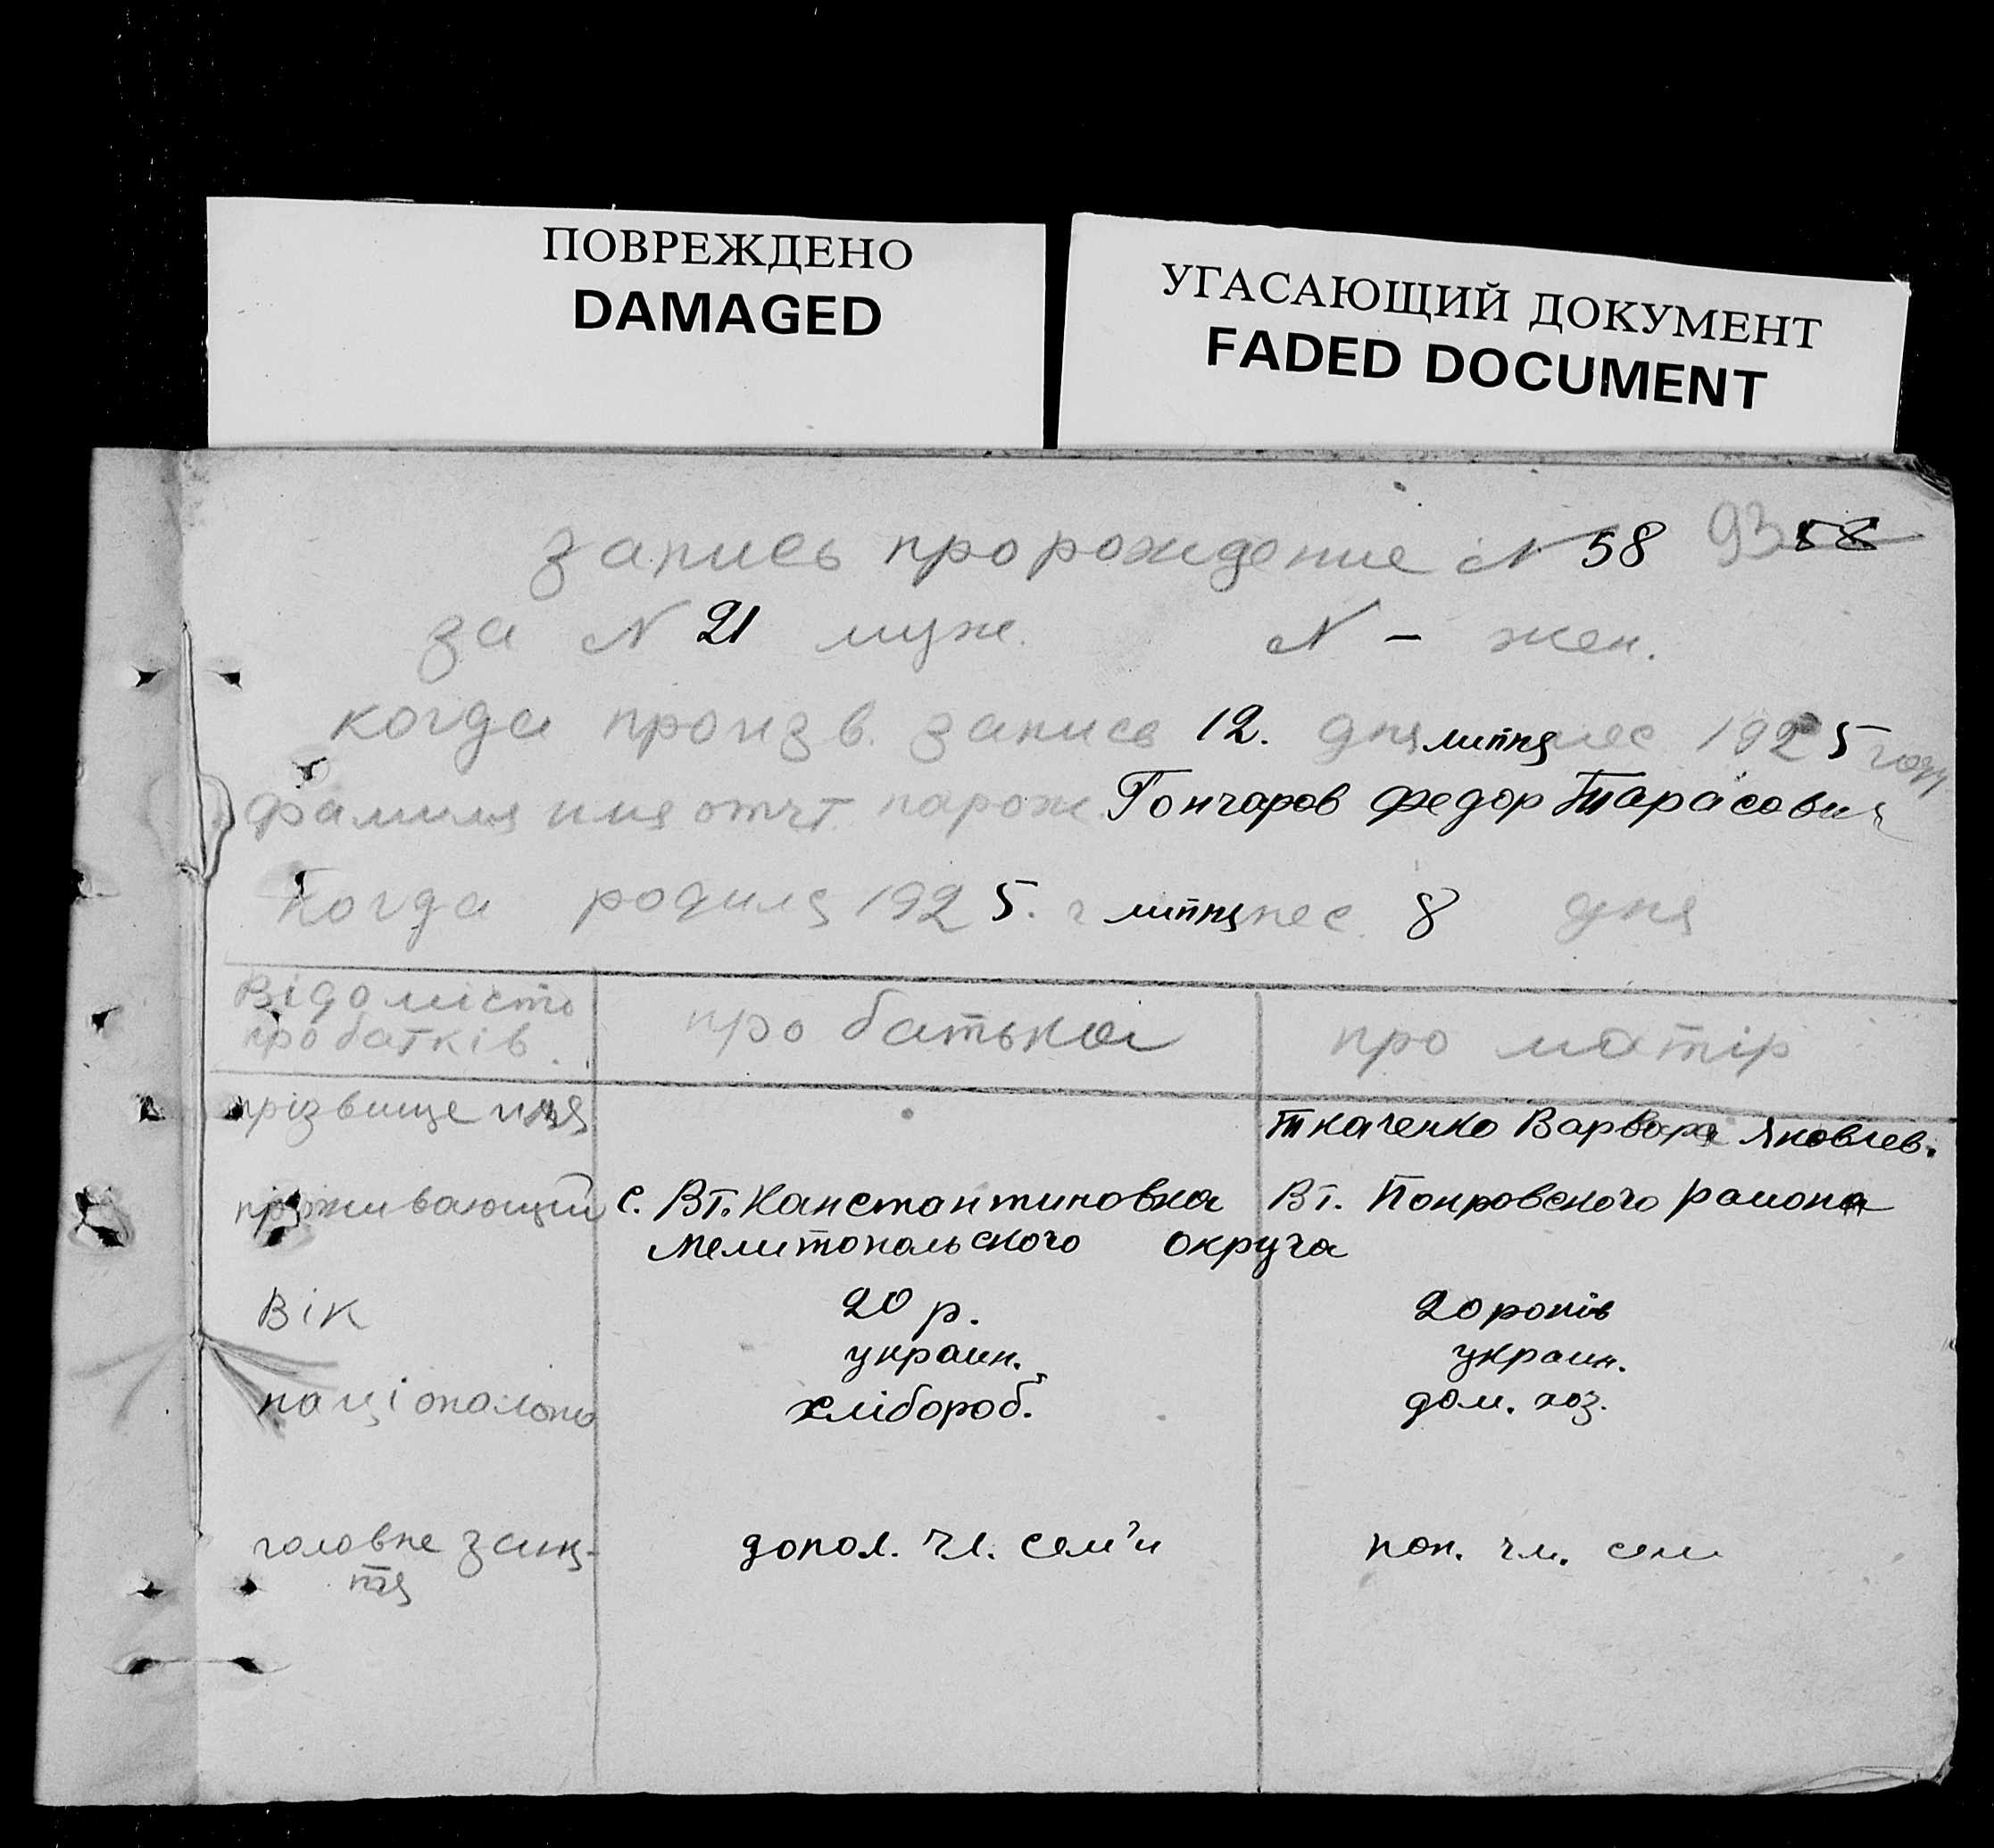 ПОВРЕЖДЕНО
DAMAGED
УГАСАЮЩИЙ ДОКУМЕНТ
FADED DOCUMENT
запись про рождение N 58 93 58
за N 21 муж. N – жен.
когда произв. запись 12. дня липня мес 1925 году
фамилия имя отчт. народж. Гончаров Федор Тарасович
Когда родился 1925. г липня мес. 8 дня
Відомість про батьків. про батька про матір
прізвище имя Ткаченко Варвара Яковлев.
проживающий с. Вт. Канстантиновка Вт. Покровского района
Мелитопольского округа
Вік 20 р. 20 років
украин. украин.
національно хлібороб. дом. хоз.
головне заня- допол. чл. сем'и поп. чл. сем
ття